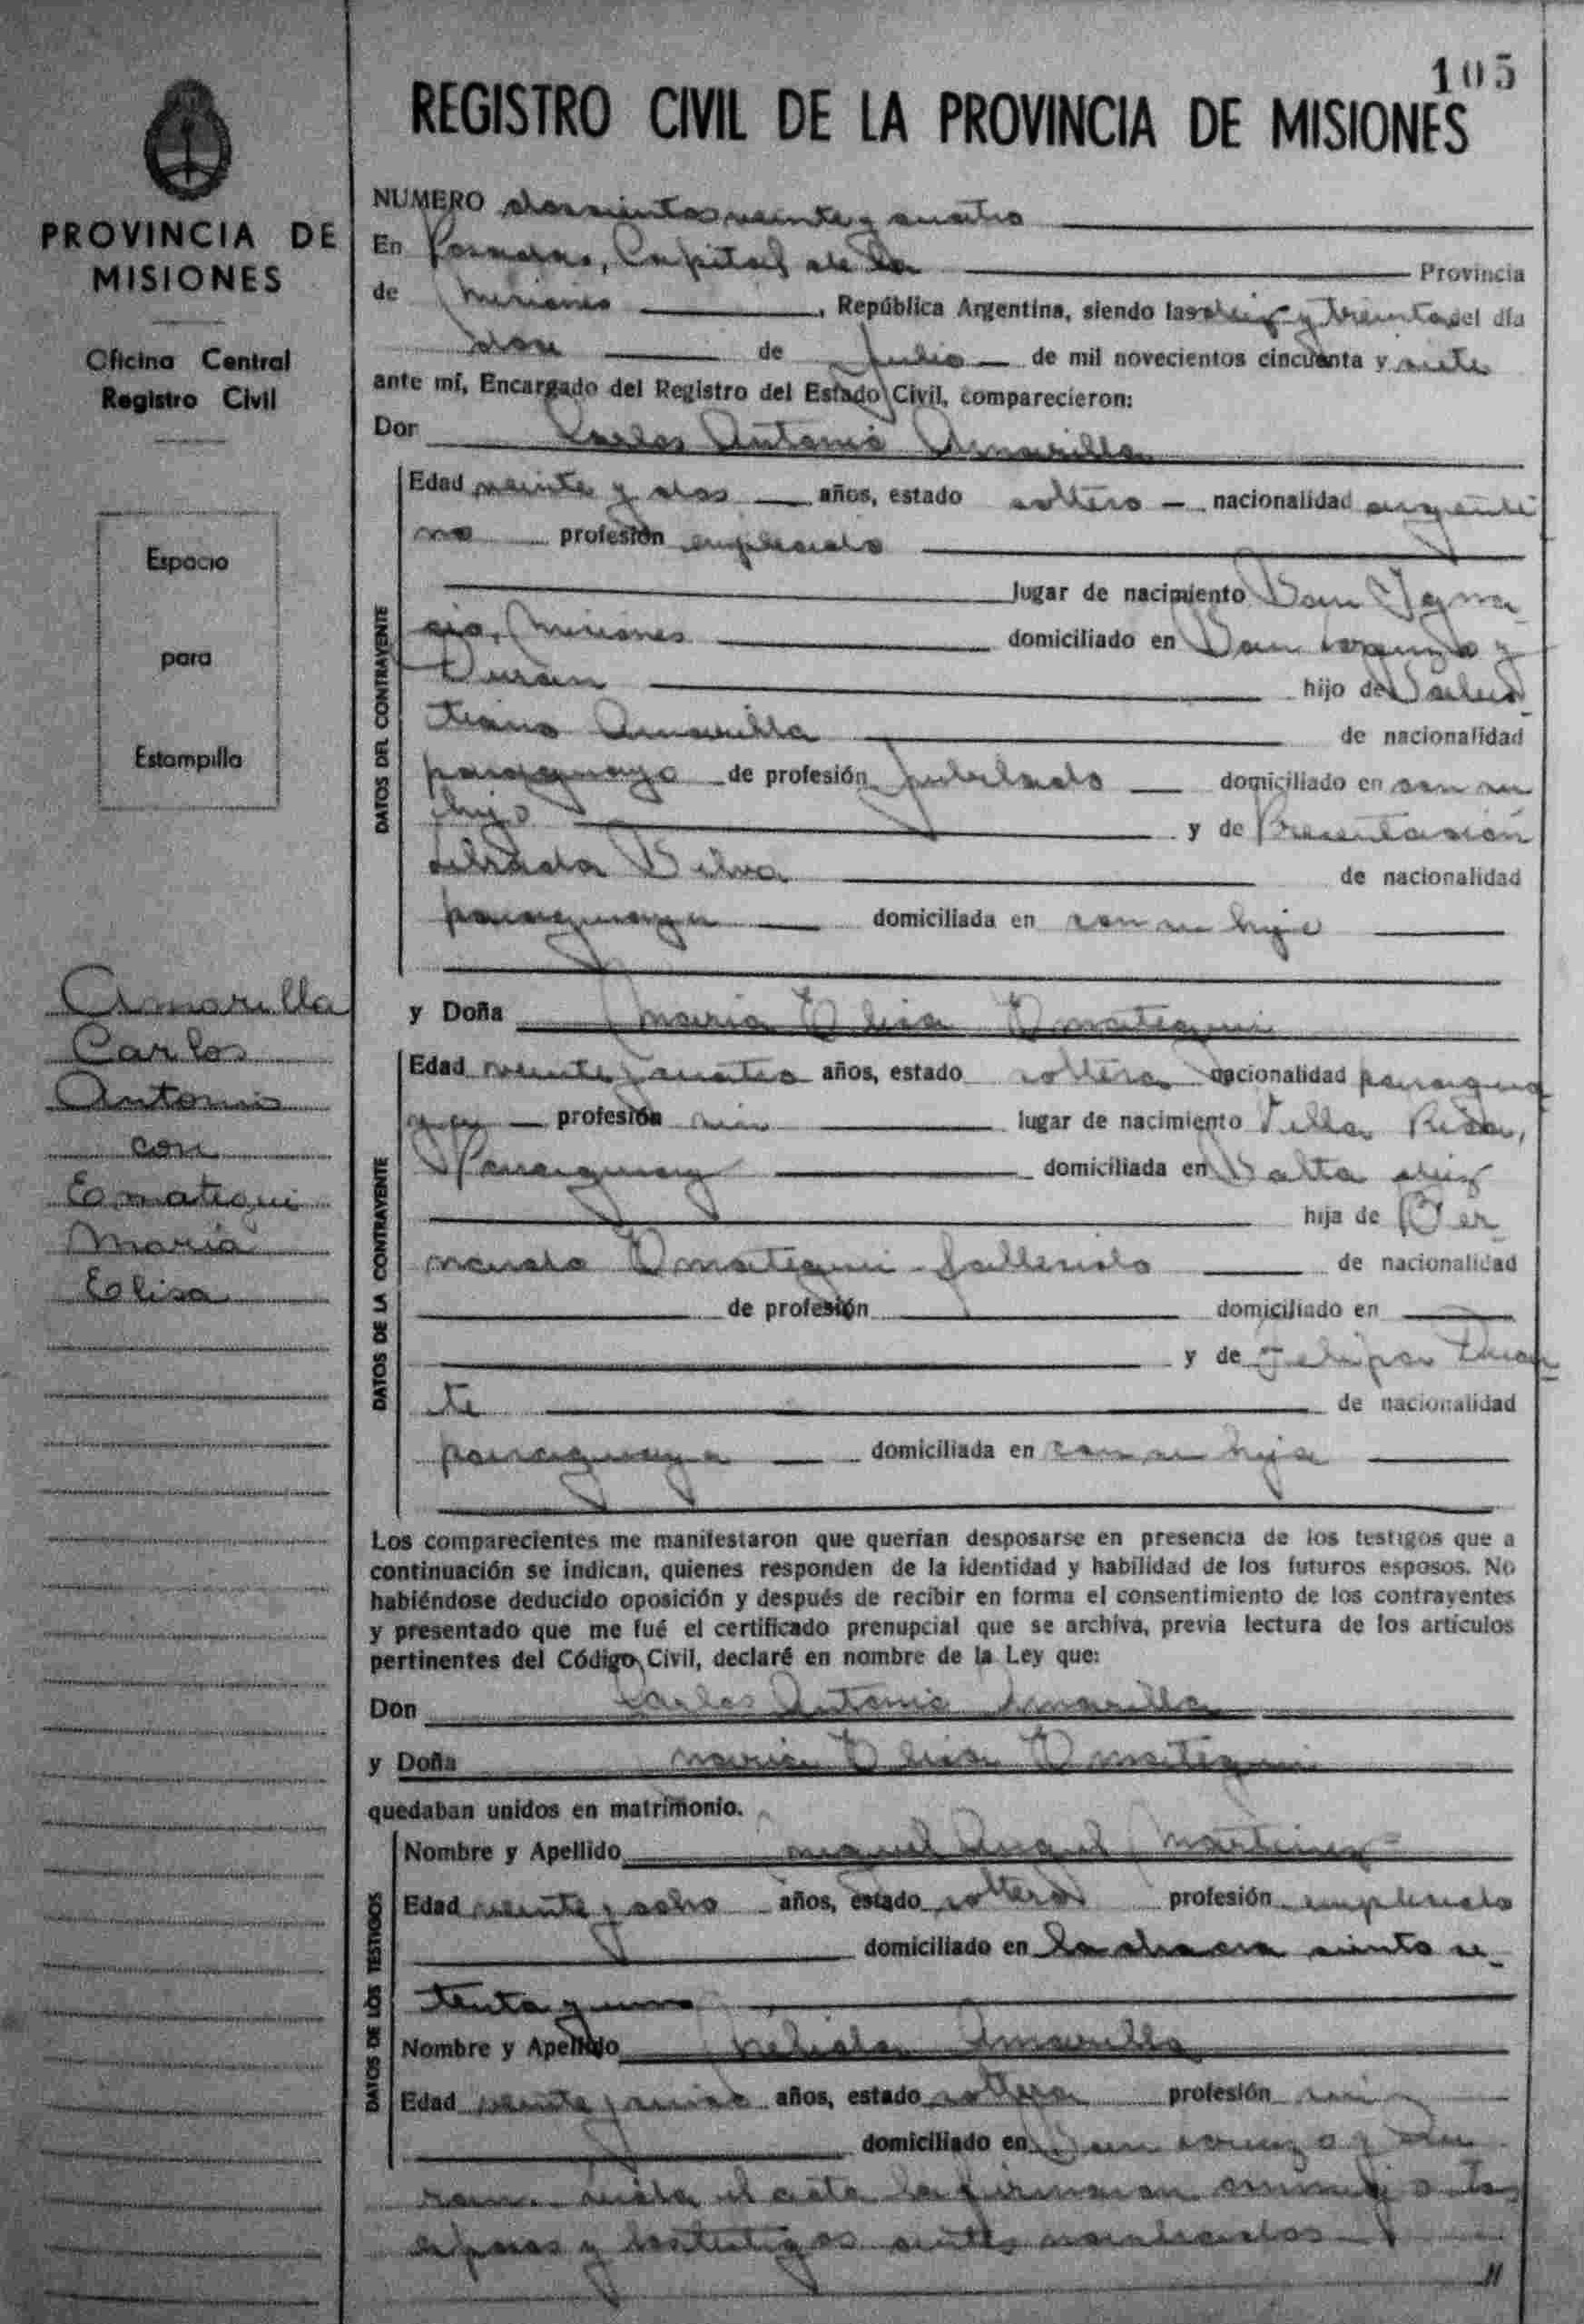 105
REGISTRO CIVIL DE LA PROVINCIA DE MISIONES
PROVINCIA DE
MISIONES
Oficina Central
Registro Civil
Espacio
para
Estampilla
Amarilla
Carlos
Antonio
con
Emategui
María
Elisa
NUMERO doscientos veinte y cuatro
En Posadas, Capital de la Provincia
de Misiones, República Argentina, siendo las diez y treinta del día
doce de Julio de mil novecientos cincuenta y siete
ante mí, Encargado del Registro del Estado Civil, comparecieron:
Don Carlos Antonio Amarilla
DATOS DEL CONTRAYENTE
Edad veinte y dos años, estado soltero nacionalidad argenti
no profesión empleado
lugar de nacimiento San Igna
cio, Misiones domiciliado en San Lorenzo y
Durán hijo de Salus
tiano Amarilla de nacionalidad
paraguayo de profesión jubilado domiciliado en con su
hijo y de Presentación
Librada Silva de nacionalidad
paraguaya domiciliada en con su hijo
y Doña María Elisa Emategui
DATOS DE LA CONTRAYENTE
Edad veinte y cuatro años, estado soltera nacionalidad paragua
ya profesión sin lugar de nacimiento Villa Rica,
Paraguay domiciliada en Salta diez
hija de Ber
nardo Emategui fallecido de nacionalidad
de profesión domiciliado en
y de Felipa Duar
te de nacionalidad
paraguaya domiciliada en con su hija
Los comparecientes me manifestaron que querían desposarse en presencia de los testigos que a
continuación se indican, quienes responden de la identidad y habilidad de los futuros esposos. No
habiéndose deducido oposición y después de recibir en forma el consentimiento de los contrayentes
y presentado que me fué el certificado prenupcial que se archiva, previa lectura de los artículos
pertinentes del Código Civil, declaré en nombre de la Ley que:
Don Carlos Antonio Amarilla
y Doña María Elisa Emategui
quedaban unidos en matrimonio.
DATOS DE LOS TESTIGOS
Nombre y Apellido Miguel Angel Martinez
Edad veinte y ocho años, estado soltero profesión empleado
domiciliado en la chacra ciento se
tenta y uno
Nombre y Apellido Amarilla
Edad veinte y cinco años, estado soltera profesión sin
domiciliado en San Lorenzo y Du
ran. Leída el acta la firmaron conmigo los
esposos y los testigos antes nombrados